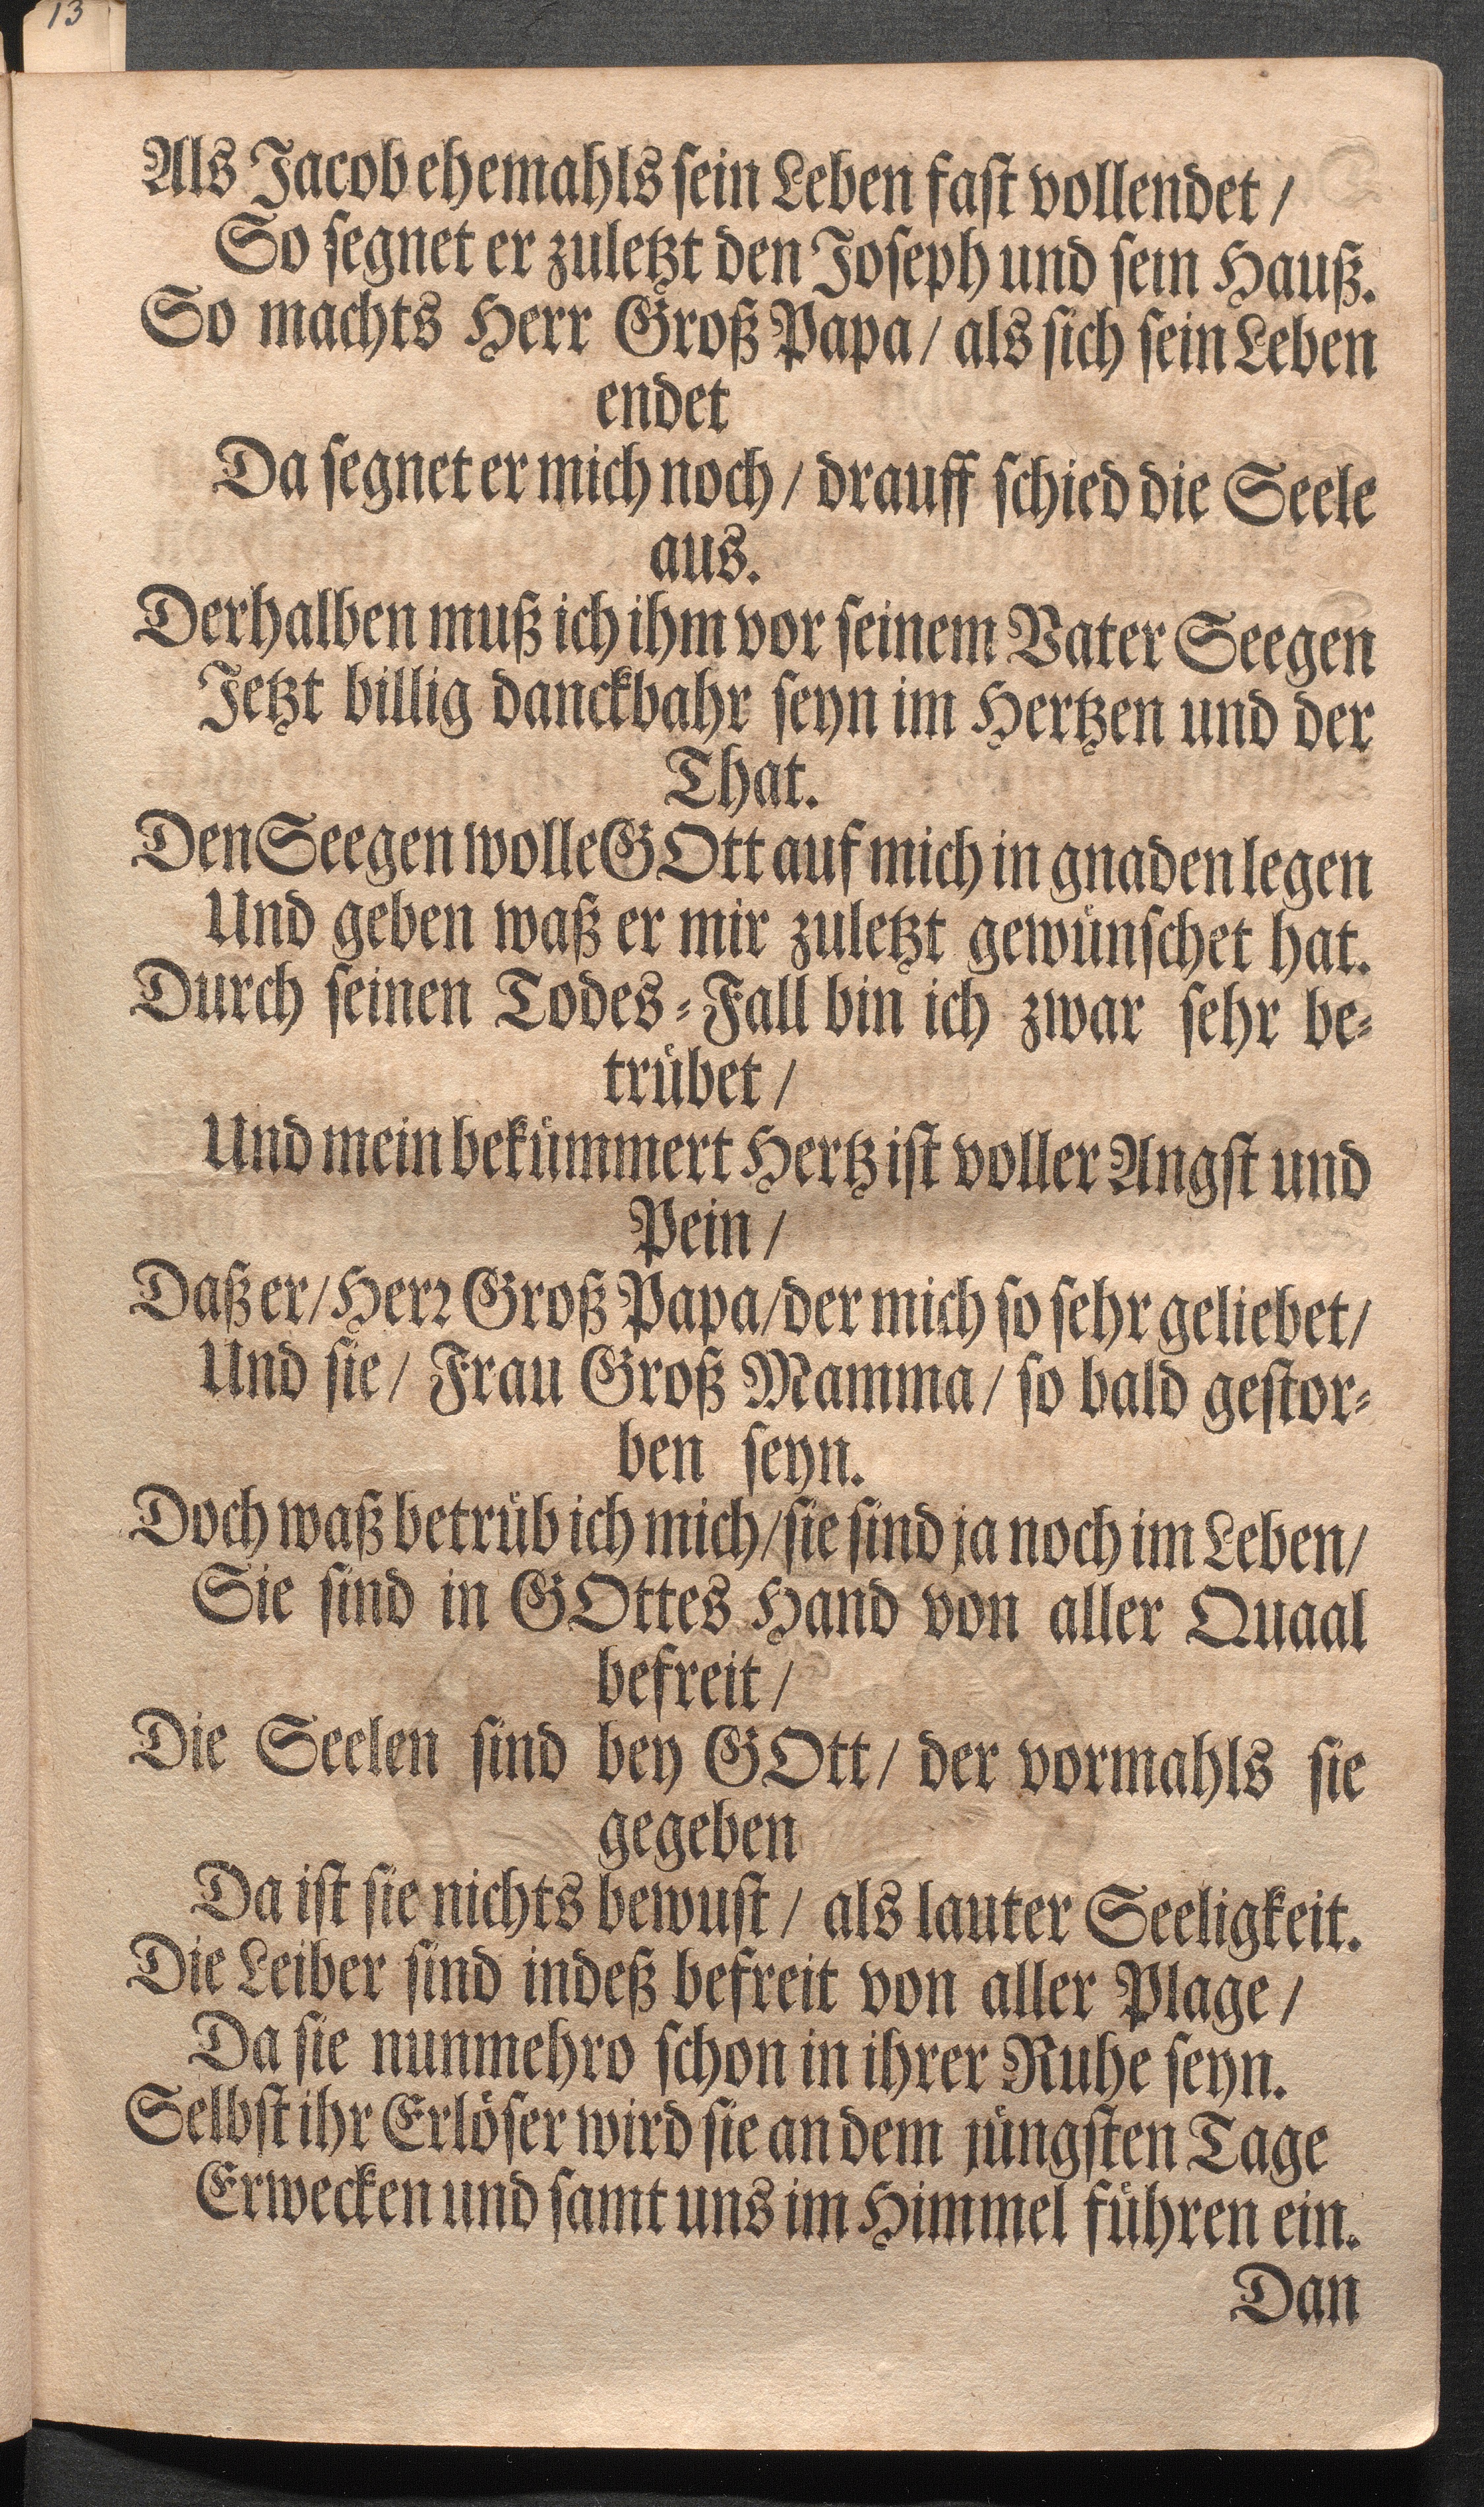 13
Als Jacob ehemahls sein Leben fast vollendet /
So segnet er zuletzt den Joseph und sein Hauß.
So machts Herr Groß Papa / als sich sein Leben
endet
Da segnet er mich noch / drauff schied die Seele
aus.
Derhalben muß ich ihm vor seinem Vater Seegen
Jetzt billig danckbahr seyn im Hertzen und der
That.
Den Seegen wolle GOtt auf mich in gnaden legen
Und geben waß er mir zuletzt gewünschet hat.
Durch seinen Todes-Fall bin ich zwar sehr be-
trübet /
Und mein bekümmert Hertz ist voller Angst und
Pein /
Daß er / Herr Groß Papa / der mich so sehr geliebet /
Und sie / Frau Groß Mamma / so bald gestor-
ben seyn.
Doch waß betrüb ich mich / sie sind ja noch im Leben /
Sie sind in GOttes Hand von aller Quaal
befreit /
Die Seelen sind bey GOtt / der vormahls sie
gegeben
Da ist sie nichts bewust / als lauter Seeligkeit.
Die Leiber sind indeß befreit von aller Plage /
Da sie nunmehro schon in ihrer Ruhe seyn.
Selbst ihr Erlöser wird sie an dem jüngsten Tage
Erwecken und samt uns im Himmel führen ein.
Dan